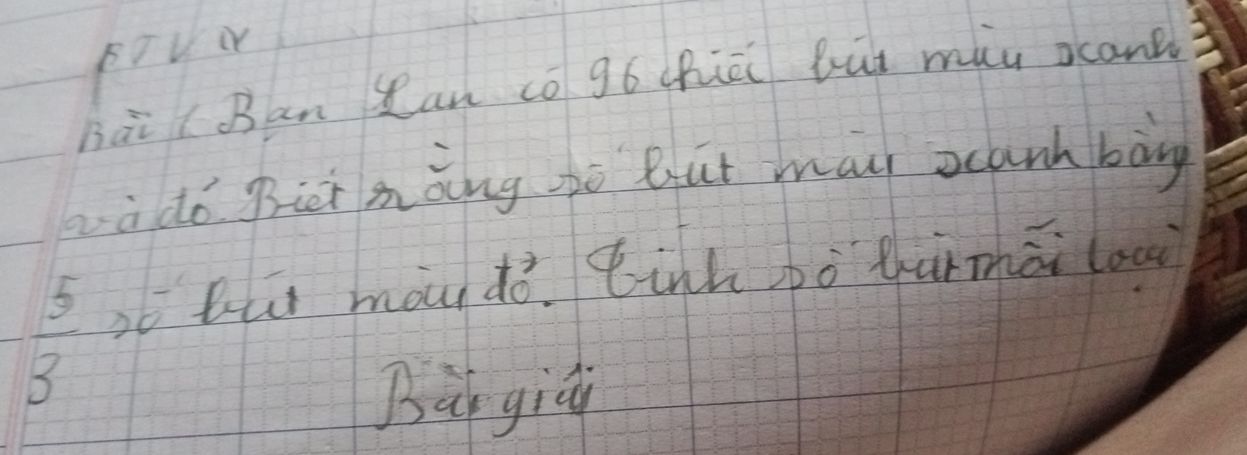 Bài 1 Bạn Lan có 96 chiếc bút màu xanh
và đỏ. Biết rằng số bút màu xanh bằng
5/3 số bút màu đỏ. Tính số bút mỗi loại
Bài giải